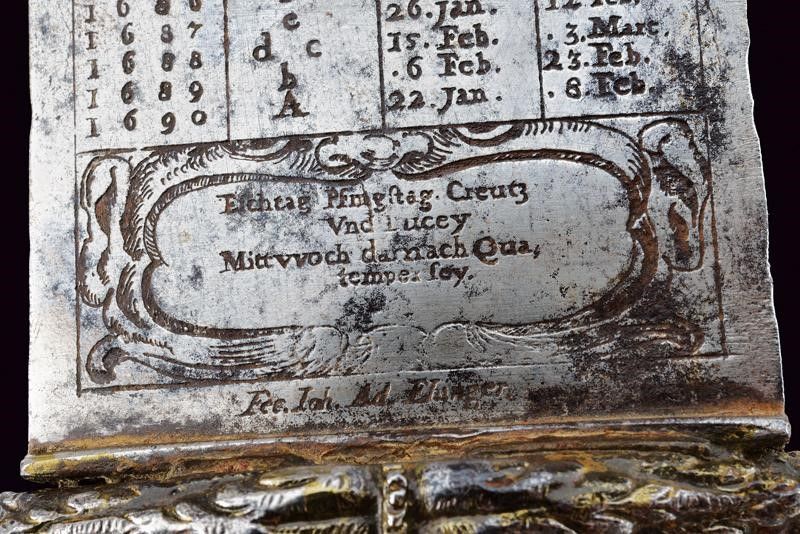 1 6 8 6 26. Jan. 12. Feb.
1 6 8 7 e 15. Feb. . 3. Mart.
1 6 8 8 d c . 6 Feb. 23. Feb.
1 6 8 9 b 22. Jan. . 8. Feb.
1 6 9 0 A
Eschtag Pfingstag. Creutz
Vnd Lucey
Mittvvoch darnach Qua,
temper sey.
Fec. Joh. Ad.